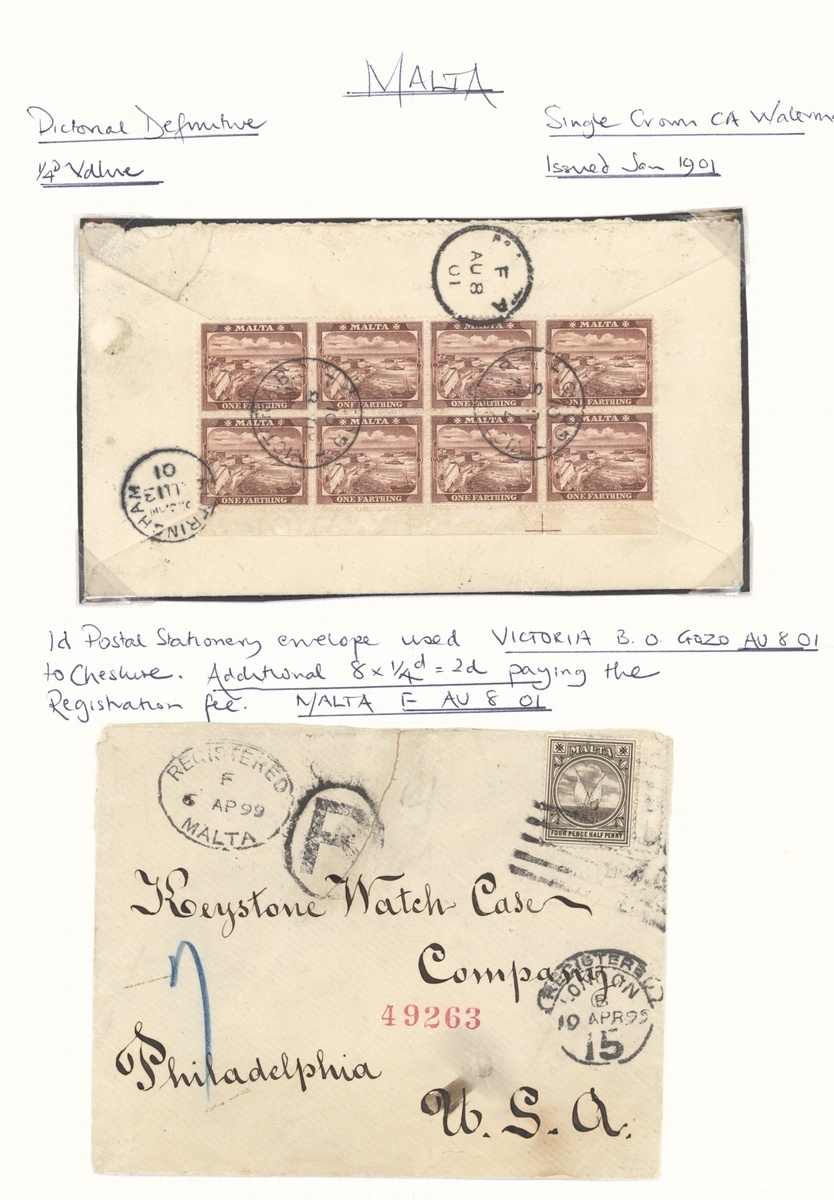 MALTA
Pictorial Definitive
Single Crown CA Waterm
1/4D Value
Issued Jan 1901
F
AU 8
01
MALTA MALTA MALTA MALTA
ONE FARTHING ONE FARTHING ONE FARTHING ONE FARTHING
MALTA MALTA MALTA MALTA
ONE FARTHING ONE FARTHING ONE FARTHING ONE FARTHING
ALTRINGHAM
13
01
1d Postal Stationery envelope used VICTORIA B.O. GOZO AU 8 01
to Cheshire. Additional 8 x 1/4d = 2d paying the
Registration fee. MALTA F AU 8 01
REGISTERED
F
6 AP 99
MALTA
R
MALTA
FOUR PENCE HALF PENNY
Keystone Watch Case
Company
REGISTERED
LONDON
10 APR 99
15
49263
Philadelphia
U.S.A.